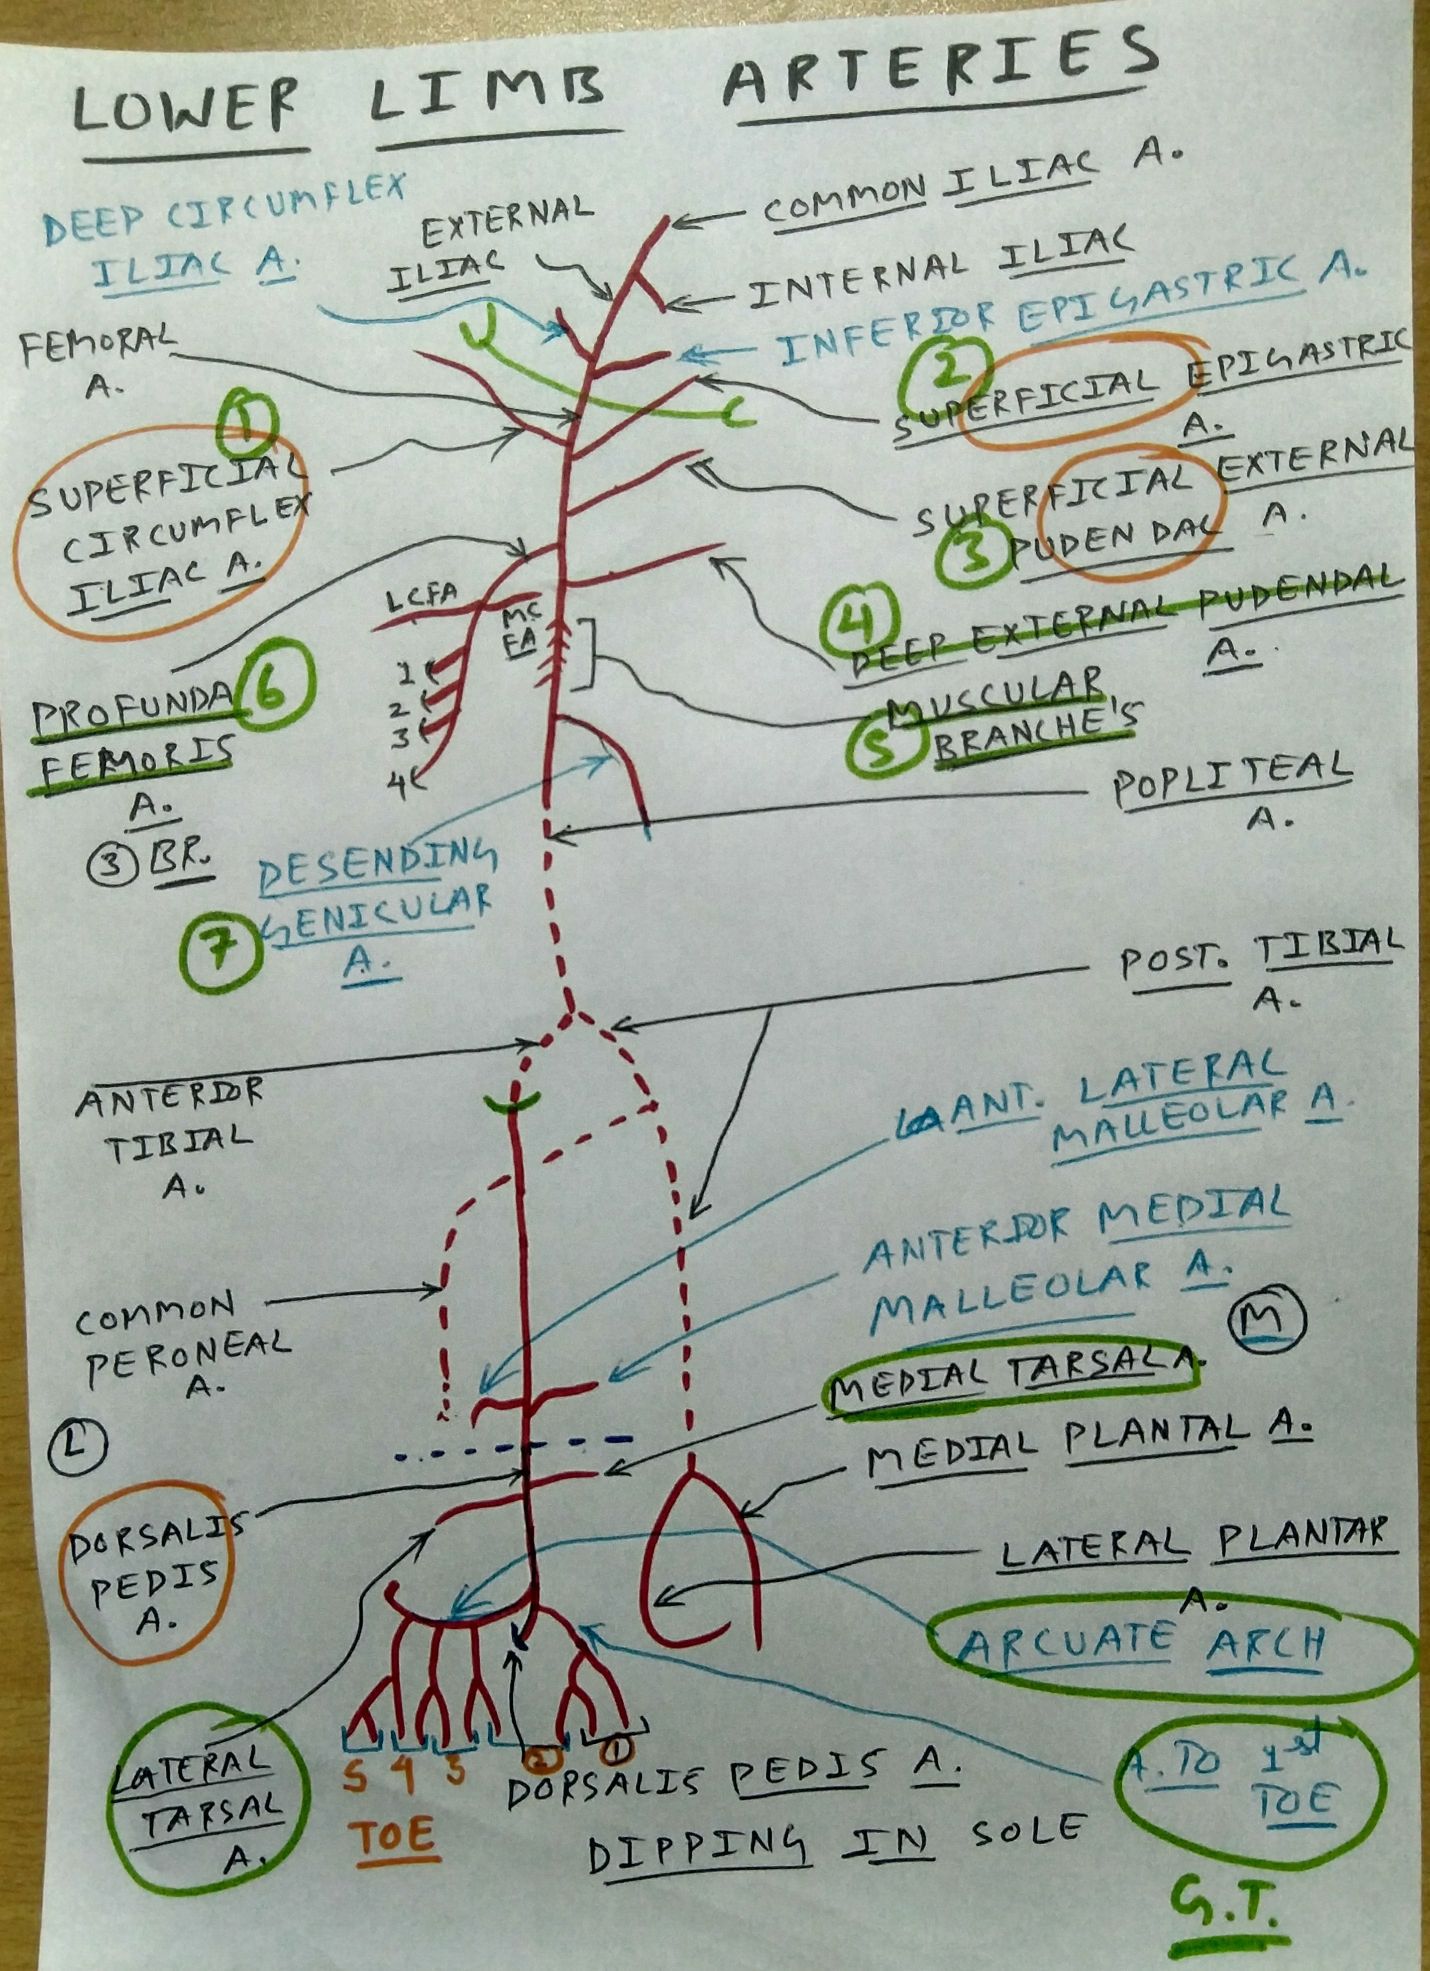 LOWER LIMB ARTERIES
DEEP CIRCUMFLEX
ILIAC A.
EXTERNAL
ILIAC
COMMON ILIAC A.
INTERNAL ILIAC
INFERIOR EPIGASTRIC A.
FEMORAL
A.
2
SUPERFICIAL EPIGASTRIC
A.
1
SUPERFICIAL
CIRCUMFLEX
ILIAC A.
SUPERFICIAL EXTERNAL
3 PUDENDAL A.
LCFA
MC
FA
4
DEEP EXTERNAL PUDENDAL
A.
1
2
3
4
PROFUNDA 6
FEMORIS
A.
3 BR.
MUSCULAR
5 BRANCHE'S
POPLITEAL
A.
DESENDING
7 GENICULAR
A.
POST. TIBIAL
A.
ANTERIOR
TIBIAL
A.
ANT. LATERAL
MALLEOLAR A.
ANTERIOR MEDIAL
MALLEOLAR A.
COMMON
PERONEAL
A.
M
MEDIAL TARSAL A.
MEDIAL PLANTAL A.
L
DORSALIS
PEDIS
A.
LATERAL PLANTAR
A.
ARCUATE ARCH
LATERAL
TARSAL
A.
5 4 3 2 1
TOE
DORSALIS PEDIS A.
DIPPING IN SOLE
A. TO 1st
TOE
G.T.